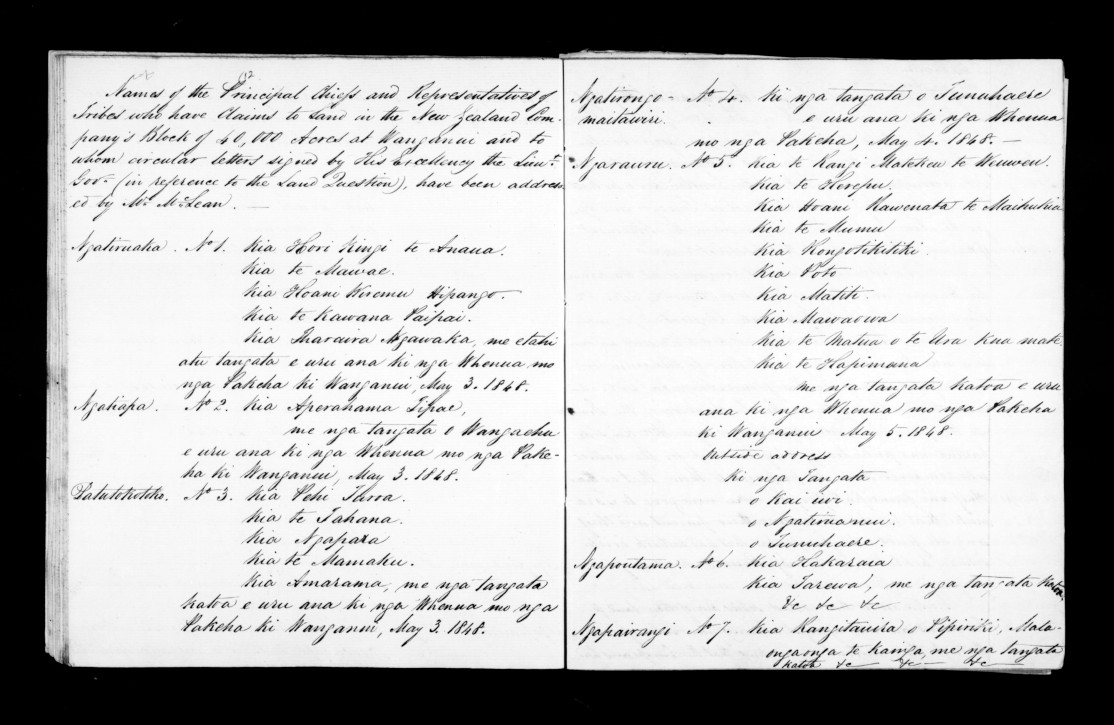 12
Names of the Principal Chiefs and Representatives of
Tribes who have Claims to Land in the New Zealand Com-
pany's Block of 40,000 Acres at Wanganui and to
whom circular letters signed by His Excellency the Lieut.
Gov. (in reference to the Land Question), have been address-
ed by Mr. McLean. —
Ngatiruaka. No. 1. Kia Hori Kingi te Anaua.
Kia te Mawae.
Kia Hoani Wiremu Hipango.
Kia te Kawana Paipai.
Kia Tharaira Ngawaka, me etahi
atu tangata e uru ana ki nga Whenua mo
nga Pakeha ki Wanganui, May 3. 1848.
Ngatiapa. No. 2. Kia Aperahama Tipae,
me nga tangata o Wangaehu
e uru ana ki nga Whenua mo nga Pake-
ha ki Wanganui, May 3. 1848.
Patutokotoko. No. 3. Kia Pehi Turoa.
Kia te Tahana.
Kia Ngapara
Kia te Mamaku.
Kia Amarama, me nga tangata
katoa e uru ana ki nga Whenua mo nga
Pakeha ki Wanganui, May 3. 1848.
Ngatirongo- No. 4. Ki nga tangata o Tunuhaere
maitawiri. e uru ana ki nga Whenua
mo nga Pakeha, May 4. 1848. —
Ngarauru. No. 5. Kia te Rangi Matoteu to Weuweu.
Kia te Horepu.
Kia Hoani Rawenata te Maihukia
Kia te Mumu
Kia Rongotikitiki.
Kia Poto
Kia Matiti.
Kia Mawaowa
Kia te Matua o te Ura kua mate
Kia te Hapimana
me nga tangata katoa e uru
ana ki nga Whenua mo nga Pakeha
ki Wanganui May 5. 1848.
Outside address
Ki nga Tangata
o Kai iwi.
o Ngatimanui.
o Tunuhaere.
Ngapoutama. No. 6. Kia Hakaraia
Kia Tarewa, me nga tangata katoa.
&c &c &c
Ngapairangi No. 7. Kia Rangitauira o Pipiriki, Mata-
ongaonga te kainga, me nga tangata
katoa &c &c &c